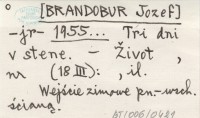 [BRANDOBUR Jozef]
-jr- 1955... Tri dni
v stene. - Život,
nr (18 III): , il.
Wejście zimowe pn.-wsch.
ścianą.
AT/006/0421